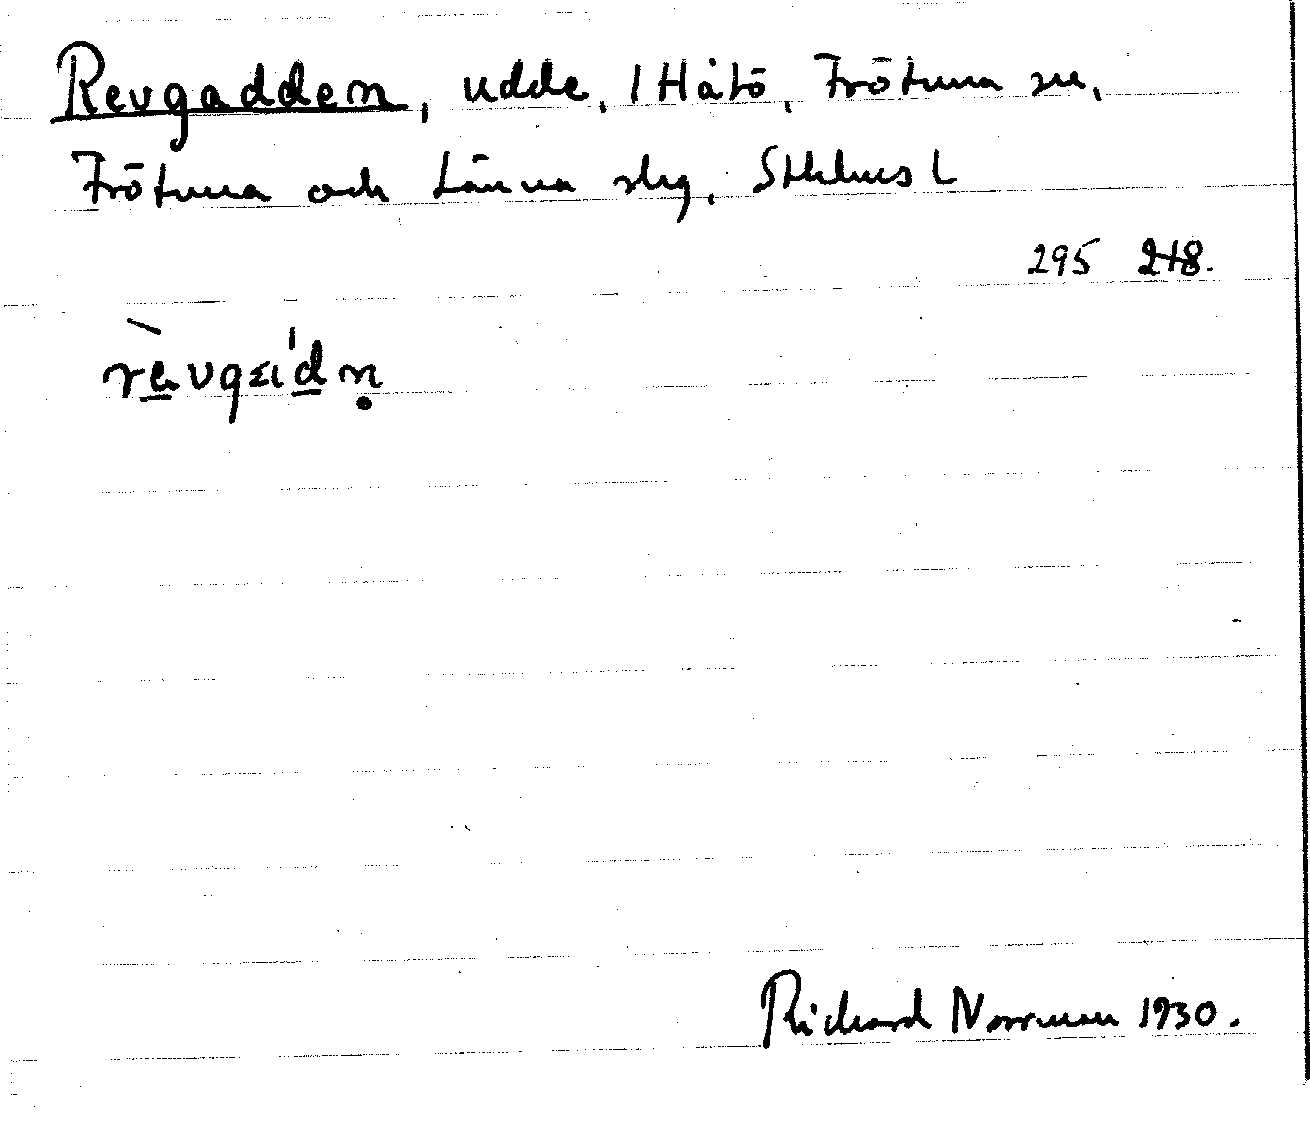 Revgadden, udde, 1 Håtö, Frötuna sn,
Frötuna och Länna slg, Sthlms L
295 218.
rèvgad'n
Richard Norrman 1930.